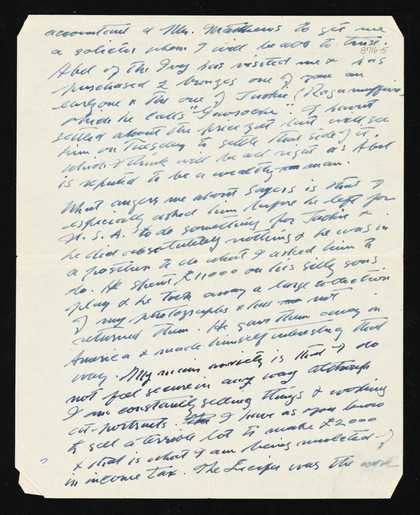 accountant & Mr. Matthews to get me
a solicitor whom I will be able to trust.
8716.5
Abel of the Troy has visited me & has
purchased 2 bronzes one of your own
earlyone & the one of Jackie (Ragamuffin)
which he calls " I havent
settled about the price yet but will see
him on Tuesday to settle that side of it
which I think will be all right as Abel
is reputed to be a wealthy man.
What angers me about Sayers is that I
especially asked him before he left for
U.S.A. to do something for Jackie &
he did absolutely nothing & he was in
a position to do what I asked him to
do. He spent £11000 on his silly sons
play & he took away a large collection
of my photographs & has not
returned them. He gave them away in
America & made himself interesting that
way. My main anxiety is that I do
not feel secure in any way although
I am constantly selling things & working
at portraits. I have as you know
to sell a terrible lot to make £2000
& that is what I am being mulcted of
in income tax. The Lucifer was the work